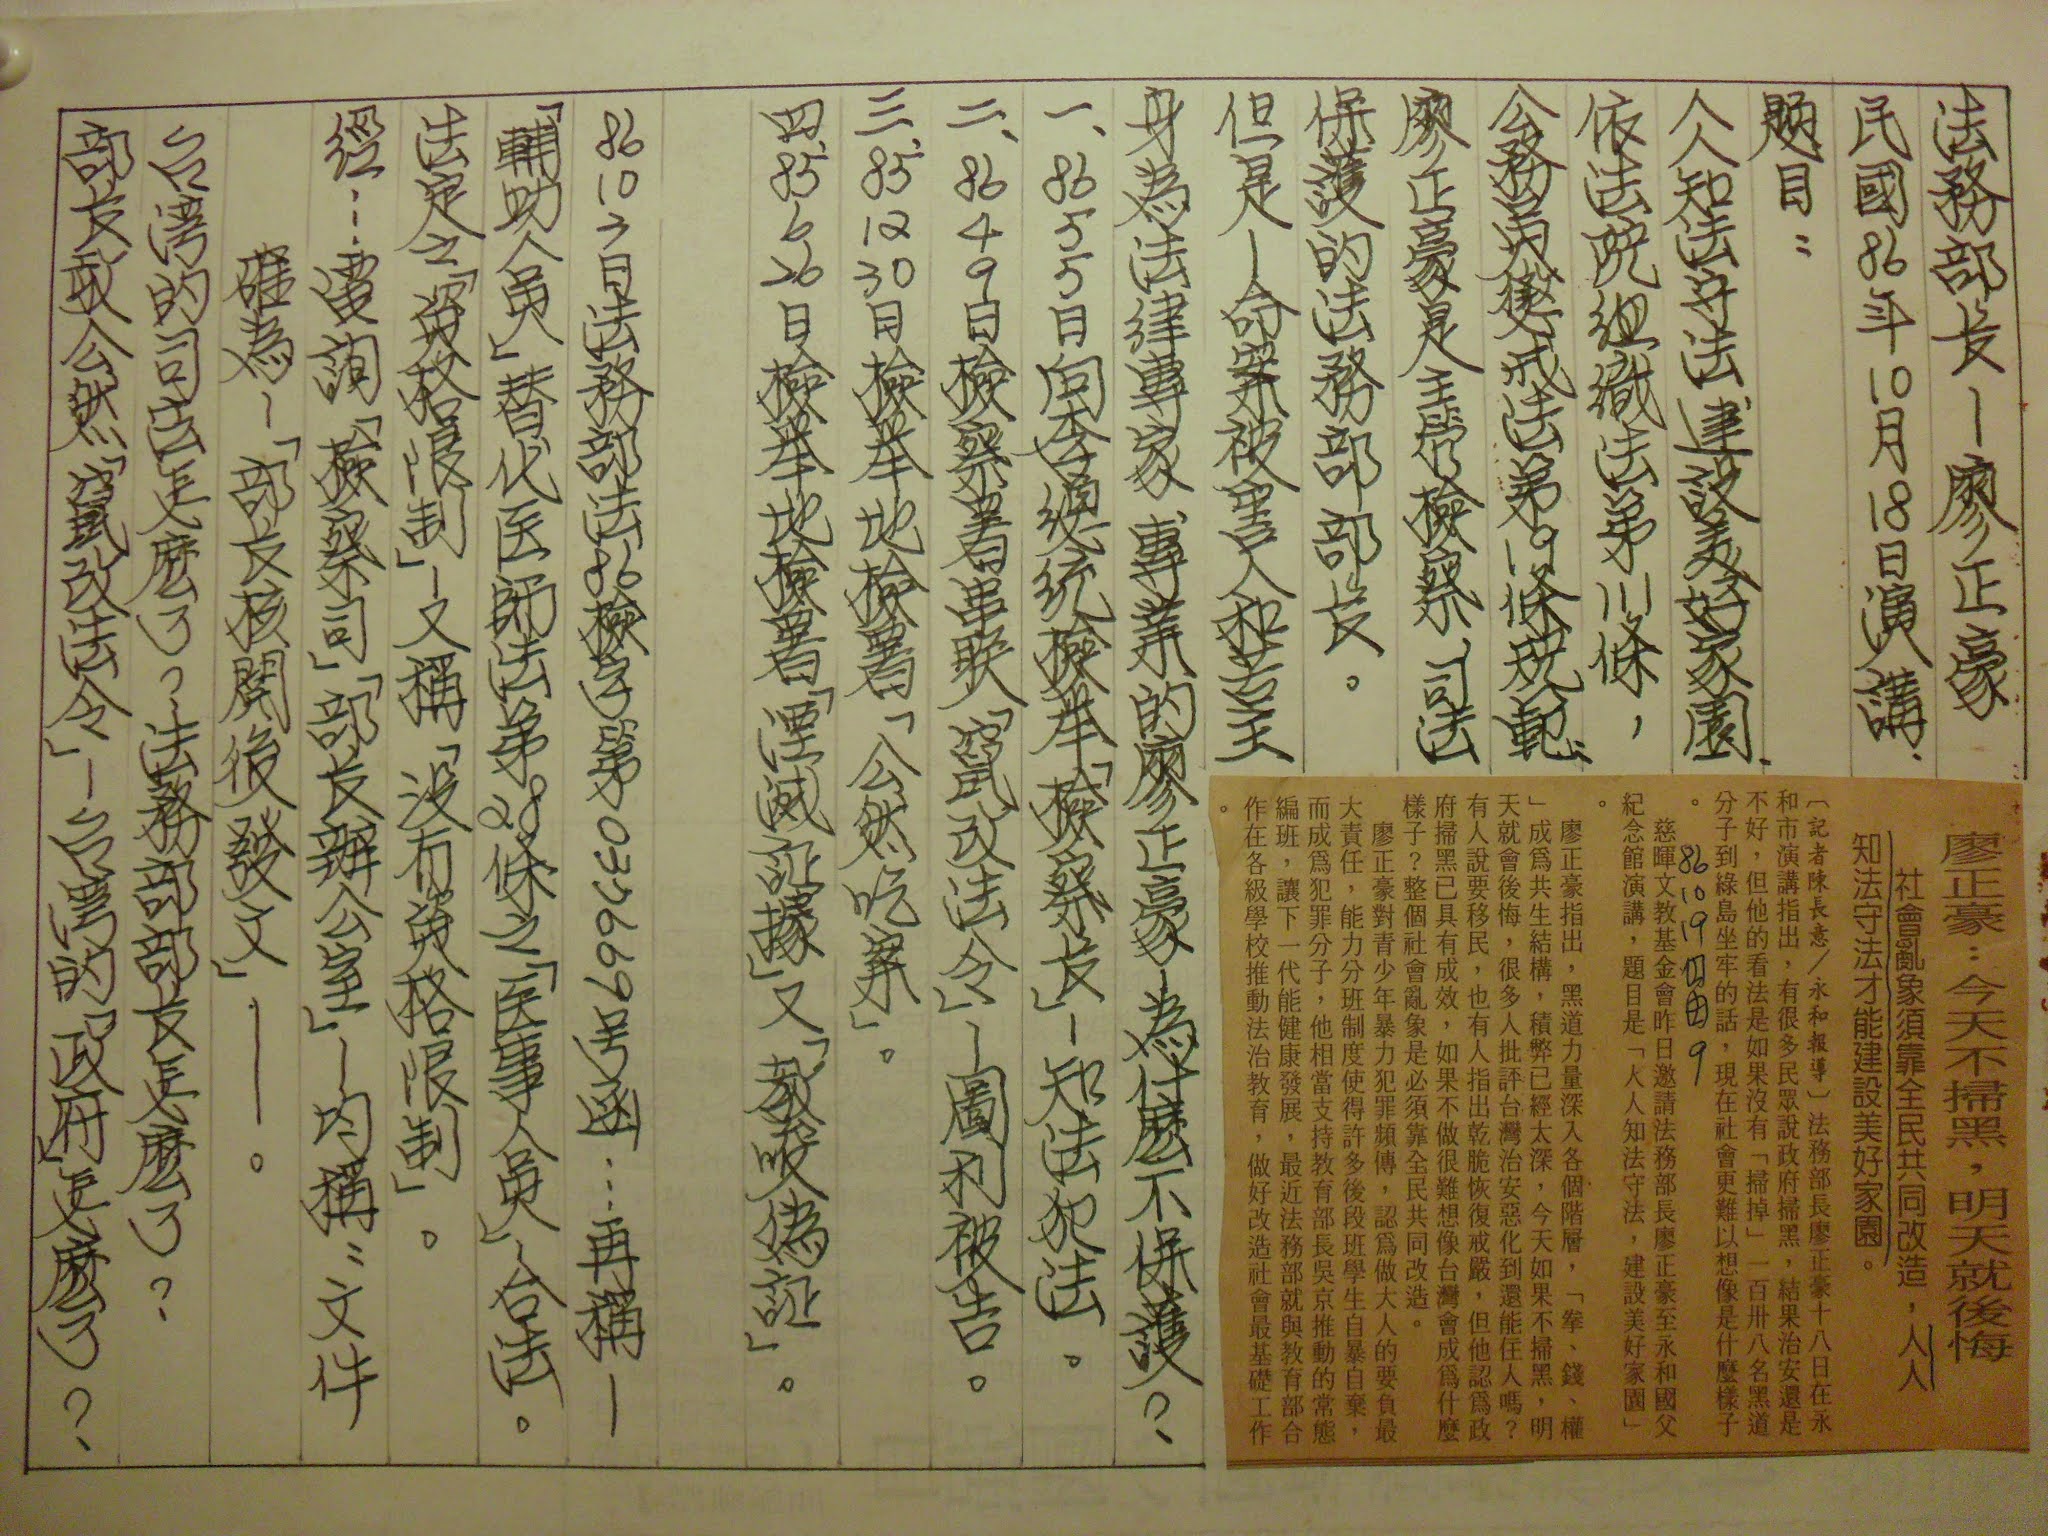 法務部長－廖正豪
民國86年10月18日演講、
題目：
人人知法守法、建設美好家園、
依法院組織法第111條，
公務員懲戒法第19條規範、
廖正豪是主管檢察、司法
保護的法務部部長。
但是－命案被害人和苦主
身為法律專家、專業的廖正豪－為什麼不保護？、
一、86 5 5日向李總統檢舉「檢察長」－知法犯法。
二、86 4 9日檢察署串联「竄改法令」－圖利被告。
三、85 12 30日檢舉地檢署「公然吃案」。
四、85 6 26日檢舉地檢署「湮滅証據」又「教唆偽証」。
86 10 7日法務部法86檢字第 号函…再稱－
「輔助人員」替代医師法第28條之「医事人員」－合法。
法定之「資格限制」－又稱「没有資格限制」。
經…電詢「檢察司」「部長辦公室」－均稱：文件
確為－「部長核閱後發文」－－。
台湾的司法怎麼了？－法務部部長怎麼了？
部長敢公然「竄改法令」－台湾的「政府」怎麼了？、
廖正豪：今天不掃黑，明天就後悔
社會亂象須靠全民共同改造，人人
知法守法才能建設美好家園。
〔記者陳長意／永和報導〕法務部長廖正豪十八日在永
和市演講指出，有很多民眾說政府掃黑，結果治安還是
不好，但他的看法是如果沒有「掃掉」一百卅八名黑道
分子到綠島坐牢的話，現在社會更難以想像是什麼樣子
。
86 10 19 自由 9
慈暉文教基金會昨日邀請法務部長廖正豪至永和國父
紀念館演講，題目是「人人知法守法，建設美好家園」
。
廖正豪指出，黑道力量深入各個階層，「拳、錢、權
」成為共生結構，積弊已經太深，今天如果不掃黑，明
天就會後悔，很多人批評台灣治安惡化到還能住人嗎？
有人說要移民，也有人指出乾脆恢復戒嚴，但他認為政
府掃黑已具有成效，如果不做很難想像台灣會成為什麼
樣子？整個社會亂象是必須靠全民共同改造。
廖正豪對青少年暴力犯罪頻傳，認為做大人的要負最
大責任，能力分班制度使得許多後段班學生自暴自棄，
而成為犯罪分子，他相當支持教育部長吳京推動的常態
編班，讓下一代能健康發展，最近法務部就與教育部合
作在各級學校推動法治教育，做好改造社會最基礎工作
。